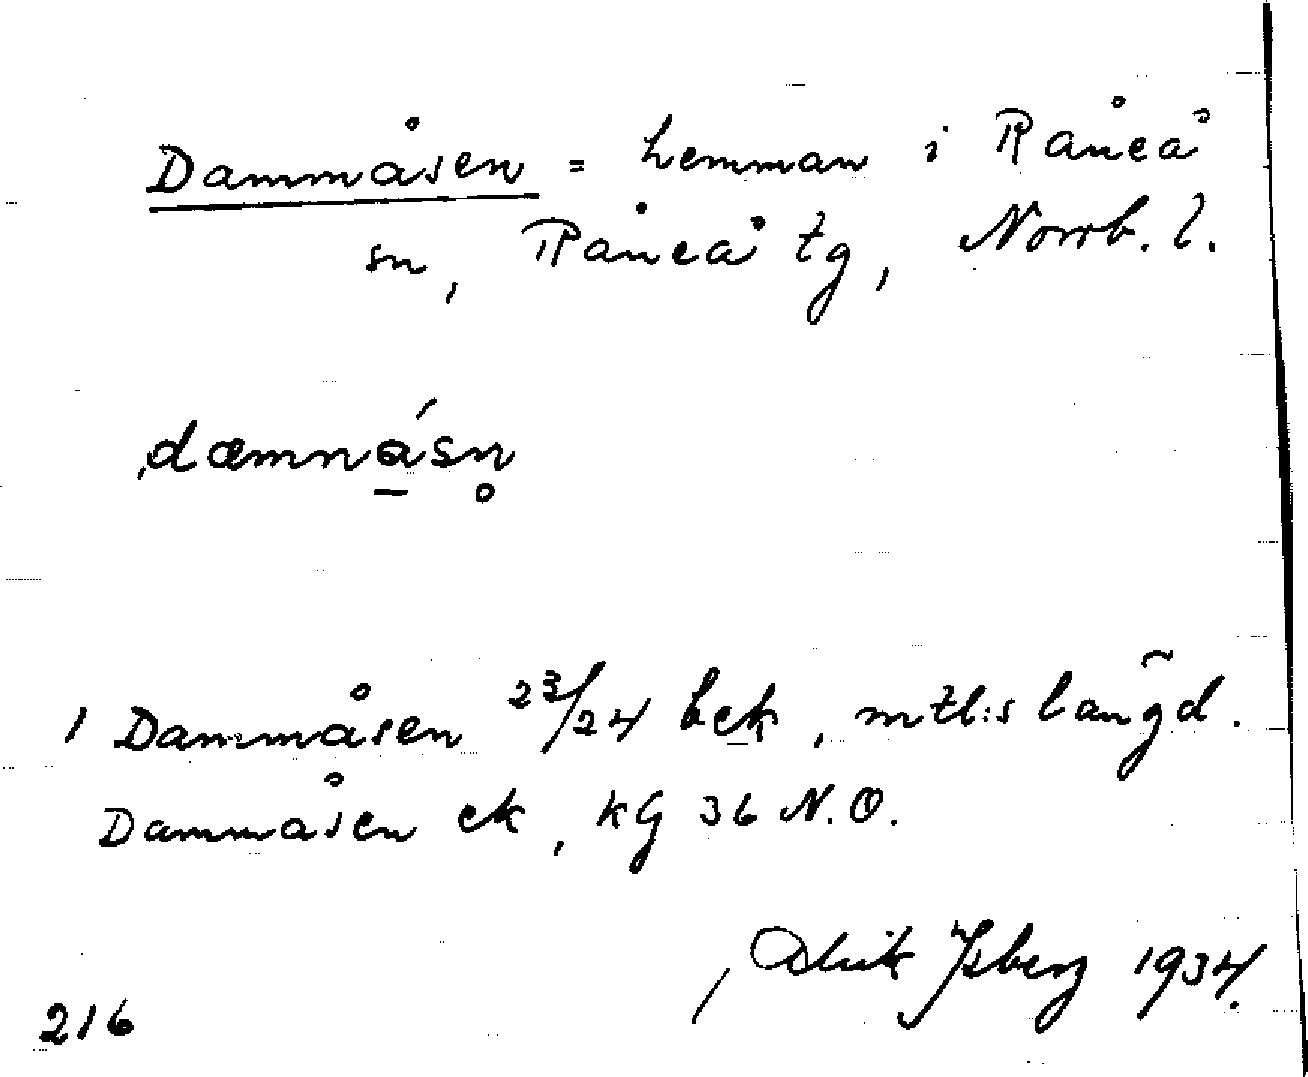 Dammåsen = hemman i Råneå
sn, Råneå tg, Norrb. l.
dæmnåsn
1 Dammåsen 23/24 bek, mtl:s längd.
Dammåsen ek, kG 36 N.O.
Isberg 1934.
216